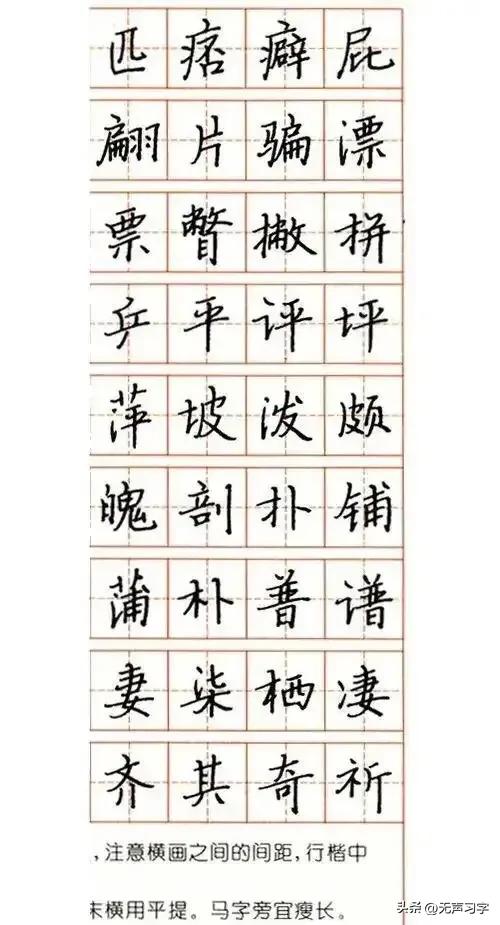 匹痞癖屁
翩片骗漂
票瞥撇拼
乒平评坪
萍坡泼颇
魄剖扑铺
蒲朴普谱
妻柒栖凄
齐其奇祈
,注意横画之间的间距,行楷中
末横用平提。马字旁宜瘦长。
头条@无声习字